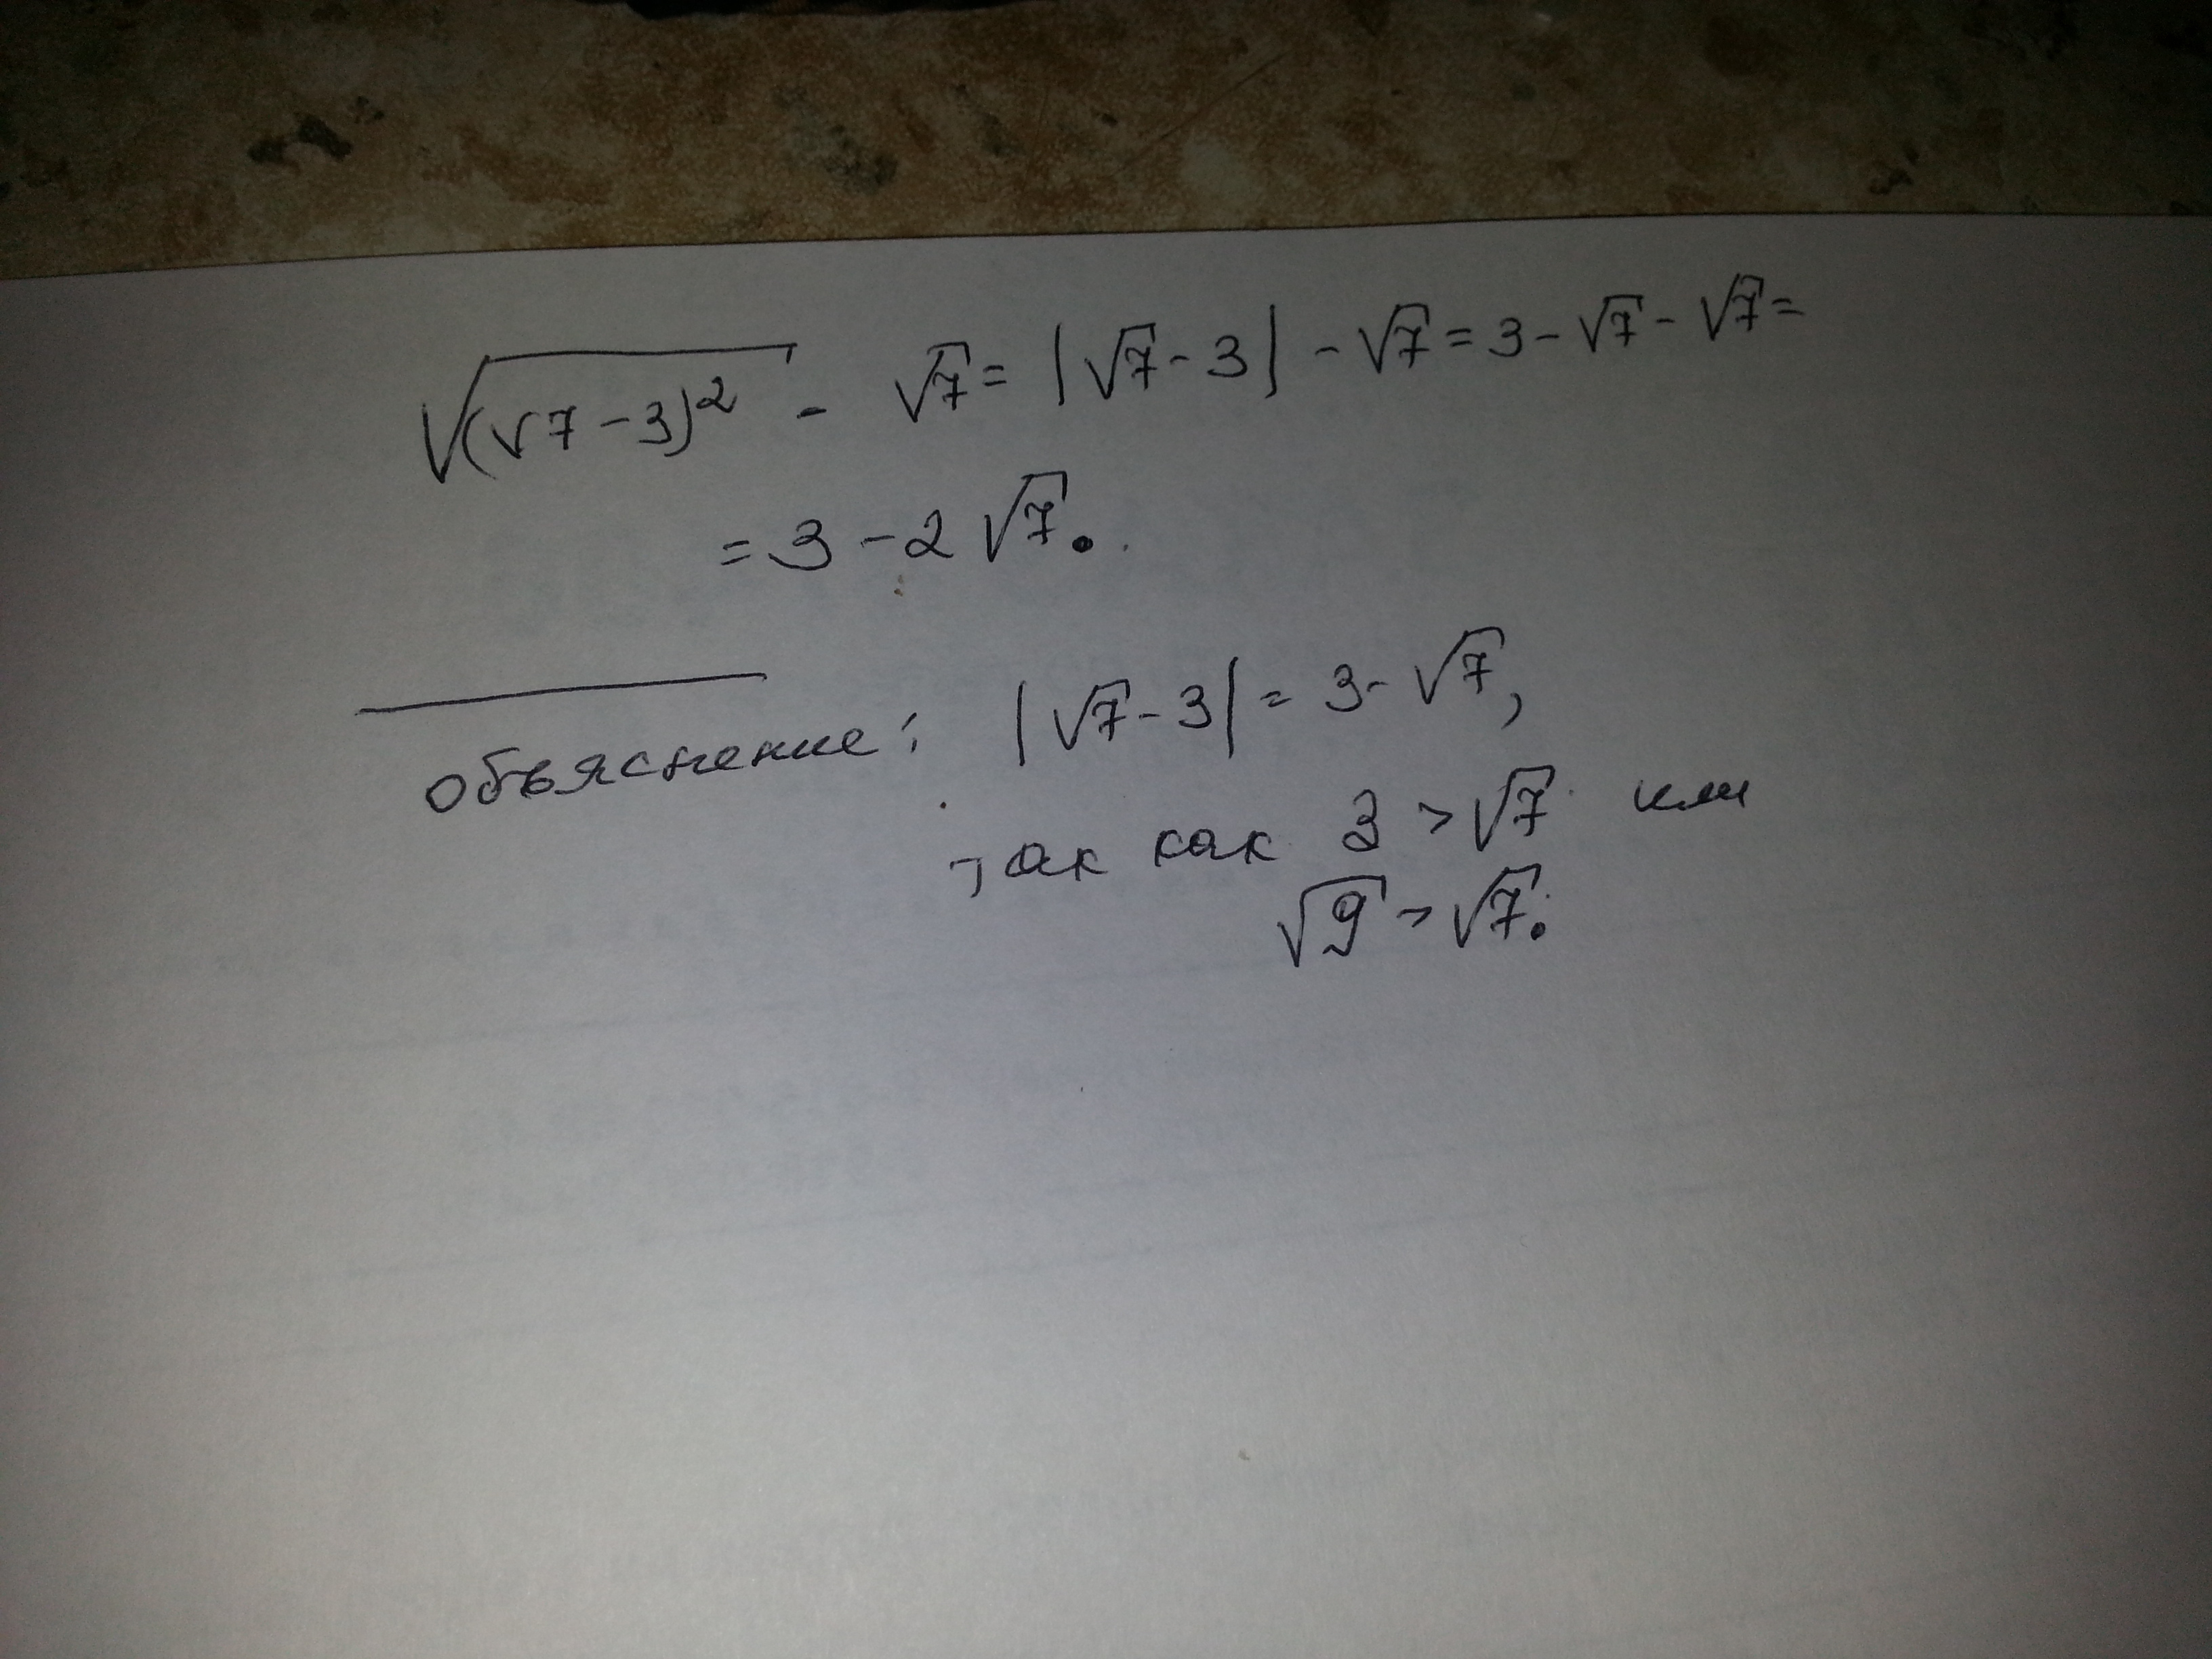 √(√7-3)² - √7 = |√7-3| - √7 = 3 - √7 - √7 =
= 3 - 2√7.
объяснение: |√7-3| = 3-√7,
так как 3 > √7 или
√9 > √7.